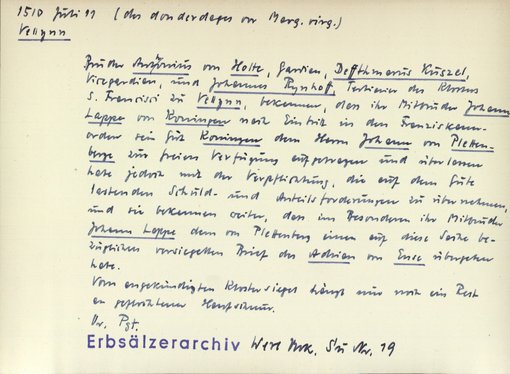 1510 Juli 11 (des donderdages vor Marg. virg.)
Vellynn
Bruder Anthonius von Holte, Gardien, Detthmarus Kuszel,
Vicegardien, und Johannes Rynhoff, Tertienier des Klosters
S. Francisci zu Vellynn, bekennen, dass ihr Mitbruder Johann
Lappe von Koningen nach Eintritt in den Franziskaner-
orden sein Gut Koningen dem Herrn Johann von Pletten-
berge zur freien Verfügung aufgetragen und überlassen
habe jedoch mit der Verpflichtung, die auf dem Gute
lastenden Schuld- und Anteilsforderungen zu übernehmen,
und sie bekennen weiter, dass im Besonderen ihr Mitbruder
Johann Lappe dem von Plettenberg einen auf diese Sache be-
züglichen versiegelten Brief des Adrian von Ense übergeben
habe.
Vom angekündigten Klostersiegel hängt nur noch ein Rest
an Hanfschnur.
Or. Pgt.
Erbsälzerarchiv Werl Urk. Nr. 19